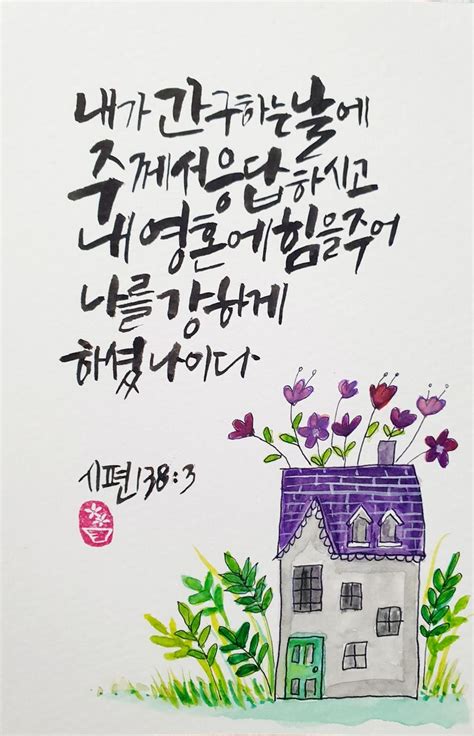 내가 간구하는 날에
주께서 응답하시고
내 영혼에 힘을 주어
나를 강하게
하셨나이다.
시편 138:3